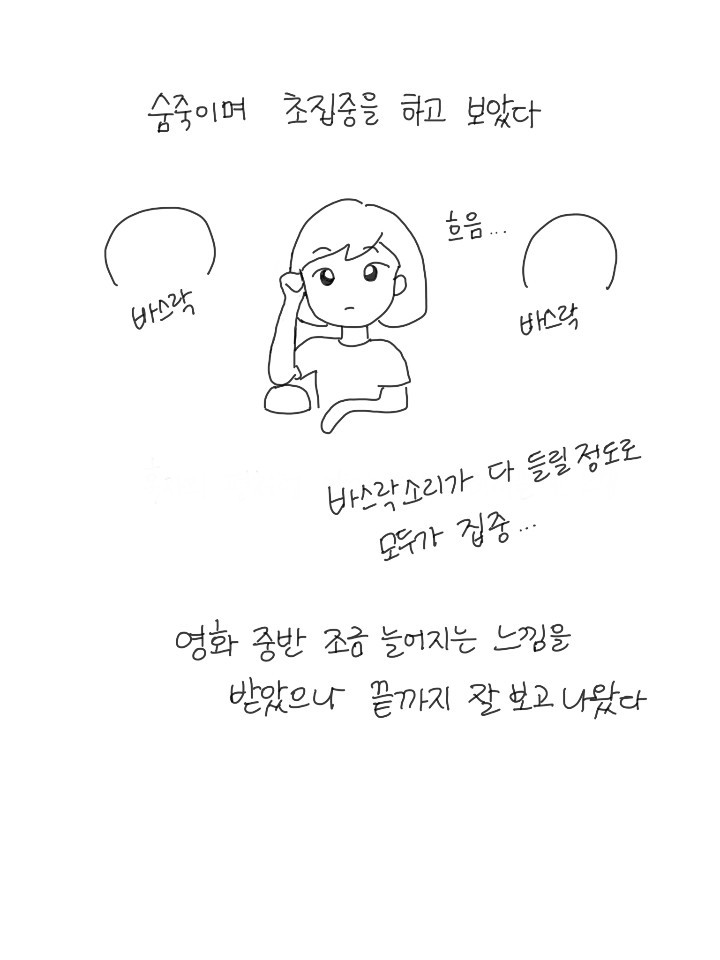 숨죽이며 초집중을 하고 보았다
흐음...
바스락
바스락
바스락소리가 다 들릴정도로
모두가 집중...
영화 중반 조금 늘어지는 느낌을
받았으나 끝까지 잘 보고 나왔다